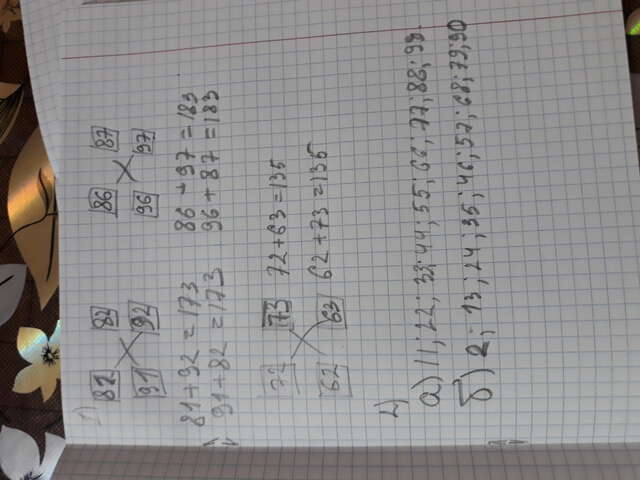 1)
81 82 86 87
91 92 96 97
81+92=173 86+97=183
91+82=173 96+87=183
72 73 72+63=135
62 63 62+73=135
2)
а) 11; 22; 33; 44; 55; 66; 77; 88; 99.
б) 2; 13; 24; 35; 46; 57; 68; 79; 90